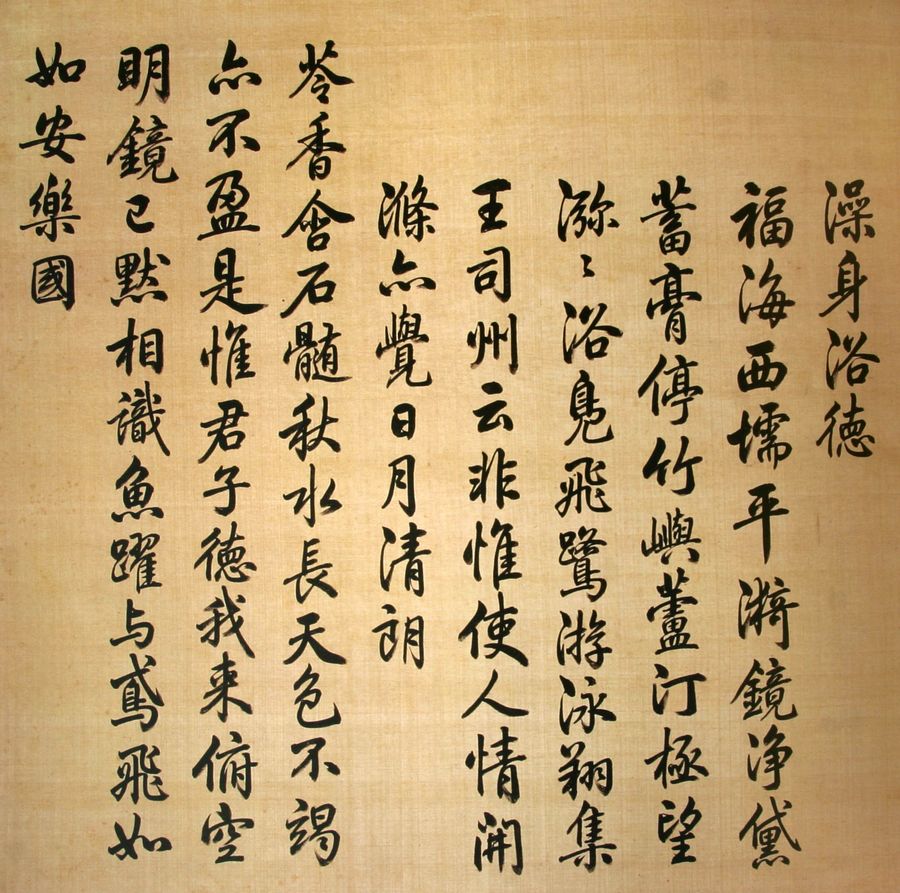 澡身浴德
福海西壖平漪鏡净黛
蓄膏停竹嶼蘆汀極望
瀰〻浴鳧飛鷺游泳翔集
王司州云非惟使人情開
滌亦覺日月清朗
苓香含石髓秋水長天色不竭
亦不盈是惟君子德我来俯空
明鏡已默相識魚躍与鳶飛如
如安樂國